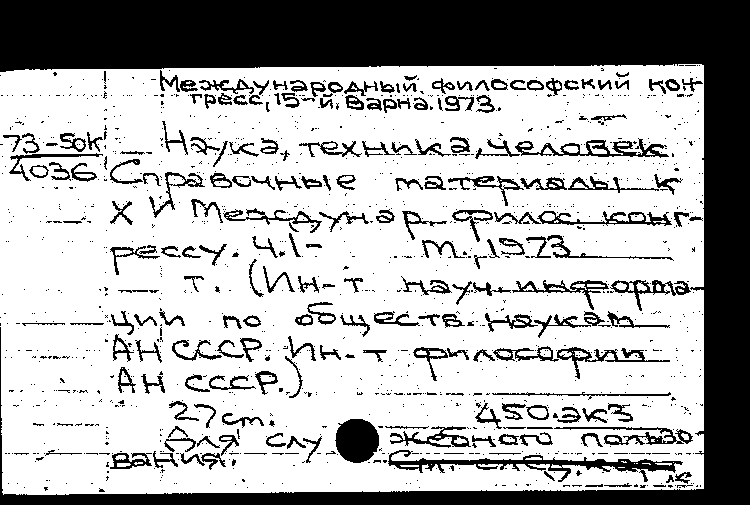 Международный философский кон-
гресс, 15-й. Варна. 1973.
73-50к
4036
Наука, техника, человек.
Справочные материалы к
XV Междунар. филос. конг-
рессу. Ч.1- М., 1973.
т. (Ин-т науч. информа-
ции по обществ. наукам
АН СССР. Ин-т философии
АН СССР.)
27 см. 450 экз
Для служебного пользо-
вания.
См. след. кар